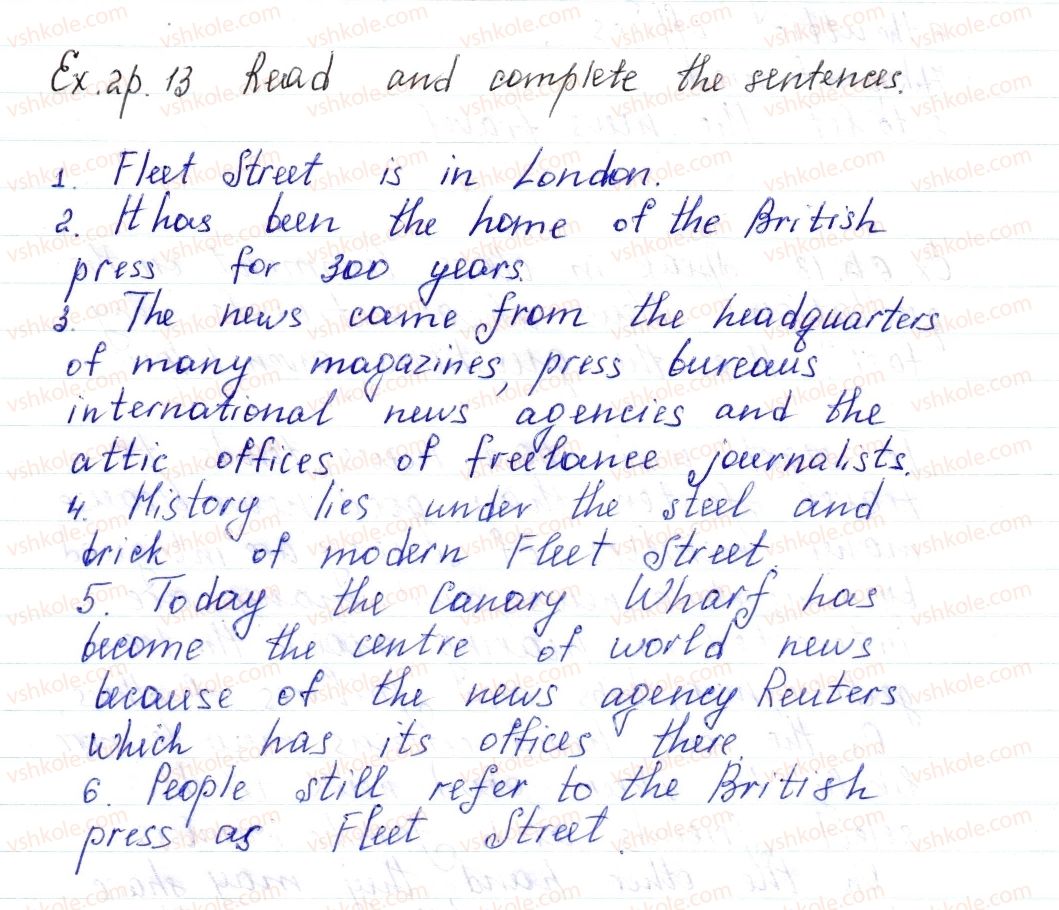 Ex. 2p. 13 Read and complete the sentences.
1. Fleet Street is in London.
2. It has been the home of the British
press for 300 years.
3. The news came from the headquarters
of many magazines, press bureaus
international news agencies and the
attic offices of freelance journalists.
4. History lies under the steel and
brick of modern Fleet Street.
5. Today the Canary Wharf has
become the centre of world news
because of the news agency Reuters
which has its offices there.
6. People still refer to the British
press as Fleet Street.
vshkole.com